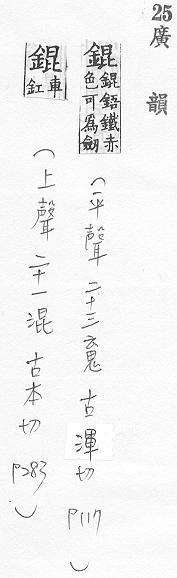 25廣韻
錕 錕鋙鐵赤色可爲劒
(平聲 二十三魂 古渾切 P117)
錕 車釭
(上聲 二十一混 古本切 P283)